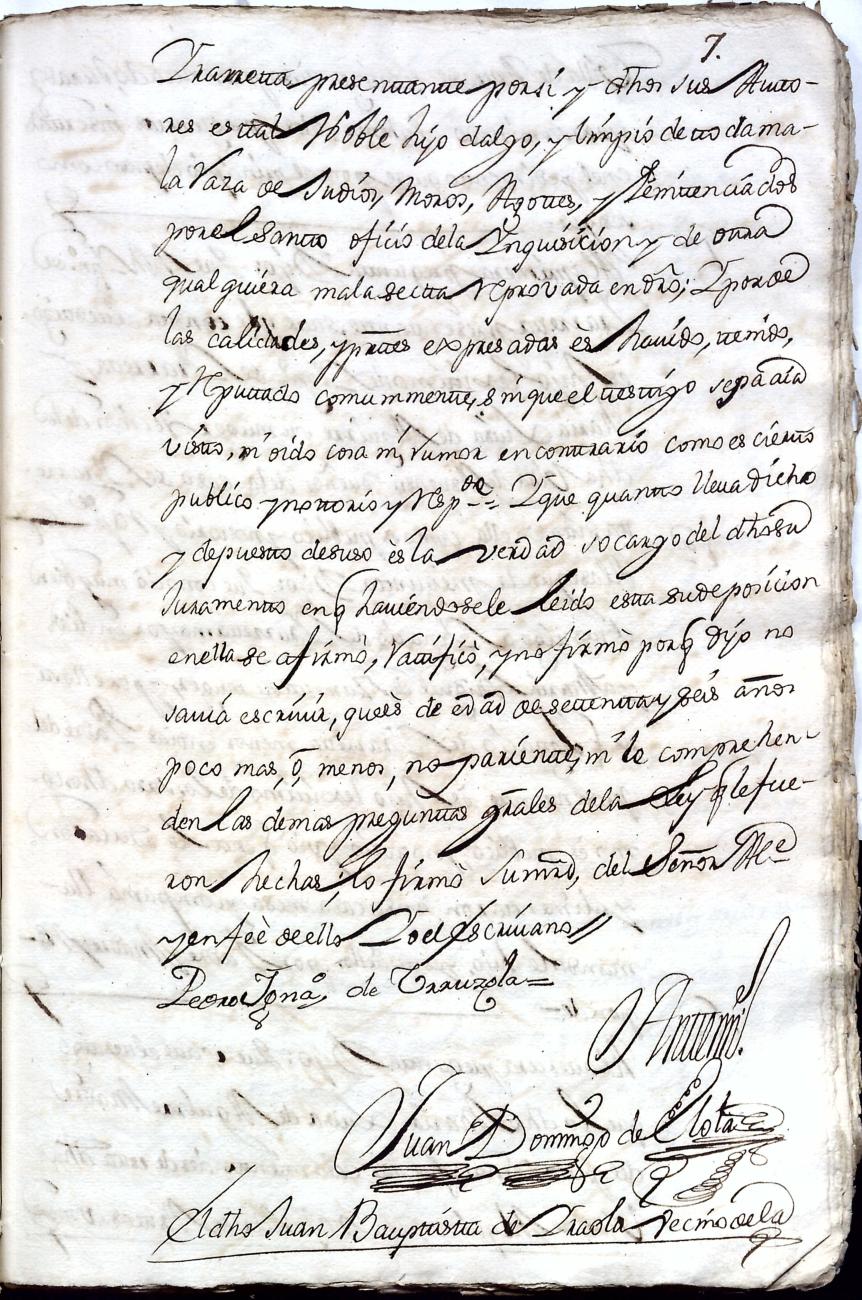 7.
Yrarreta presentante por si y dhos sus Auto-
res es tal Noble hijo dalgo, y limpio de toda ma-
la Raza de Judios, Moros, Agotes, y Penitenciados
por el Santo oficio de la Inquisicion y de otra
qualquiera mala secta reprovada en dro; Y por de
las calidades, y partes expresadas ès havido, tenido,
y Reputado comunmente, sin que el testigo sepa aia
visto, ni oido cosa ni, rumor en contrario como es cierto
publico y nottorio y Resp.do = Y que quanto lleva dicho
y depuesto desuso ès la verdad so cargo del dho su
Juramento en q haviendosele leido esta su deposicion
en ella se afirmò, Ratificò, y no firmò porq dijo no
savia escrivir, que ès de edad de setenta y seis años
poco mas, ò, menos, no pariente, ni le comprehen-
den las demas preguntas grales de la Ley q le fue-
ron hechas; lo firmò Su mrd, del Señor Alde
y en feè de ello Yo el Escrivano //
Pedro Igna.o de Yrauzola =
Antemi.
Juan Domingo de Elola
El dho Juan Bauptista de Yraola Vecino de la